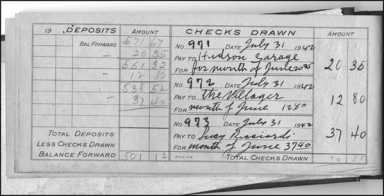 19 DEPOSITS AMOUNT
BAL FORWARD 571 67
20 35
551 32
12 80
538 52
37 40
TOTAL DEPOSITS
LESS CHECKS DRAWN
BALANCE FORWARD 501 12
CHECKS DRAWN AMOUNT
NO 971 DATE July 31 1942
PAY TO Hudson Garage
FOR month of June 20 35
NO 972 DATE July 31 1942
PAY TO The Villager
FOR month of June 12 80 12 80
NO 973 DATE July 31 1942
PAY TO Lucy
FOR month of June 37 40 37 40
TOTAL CHECKS DRAWN